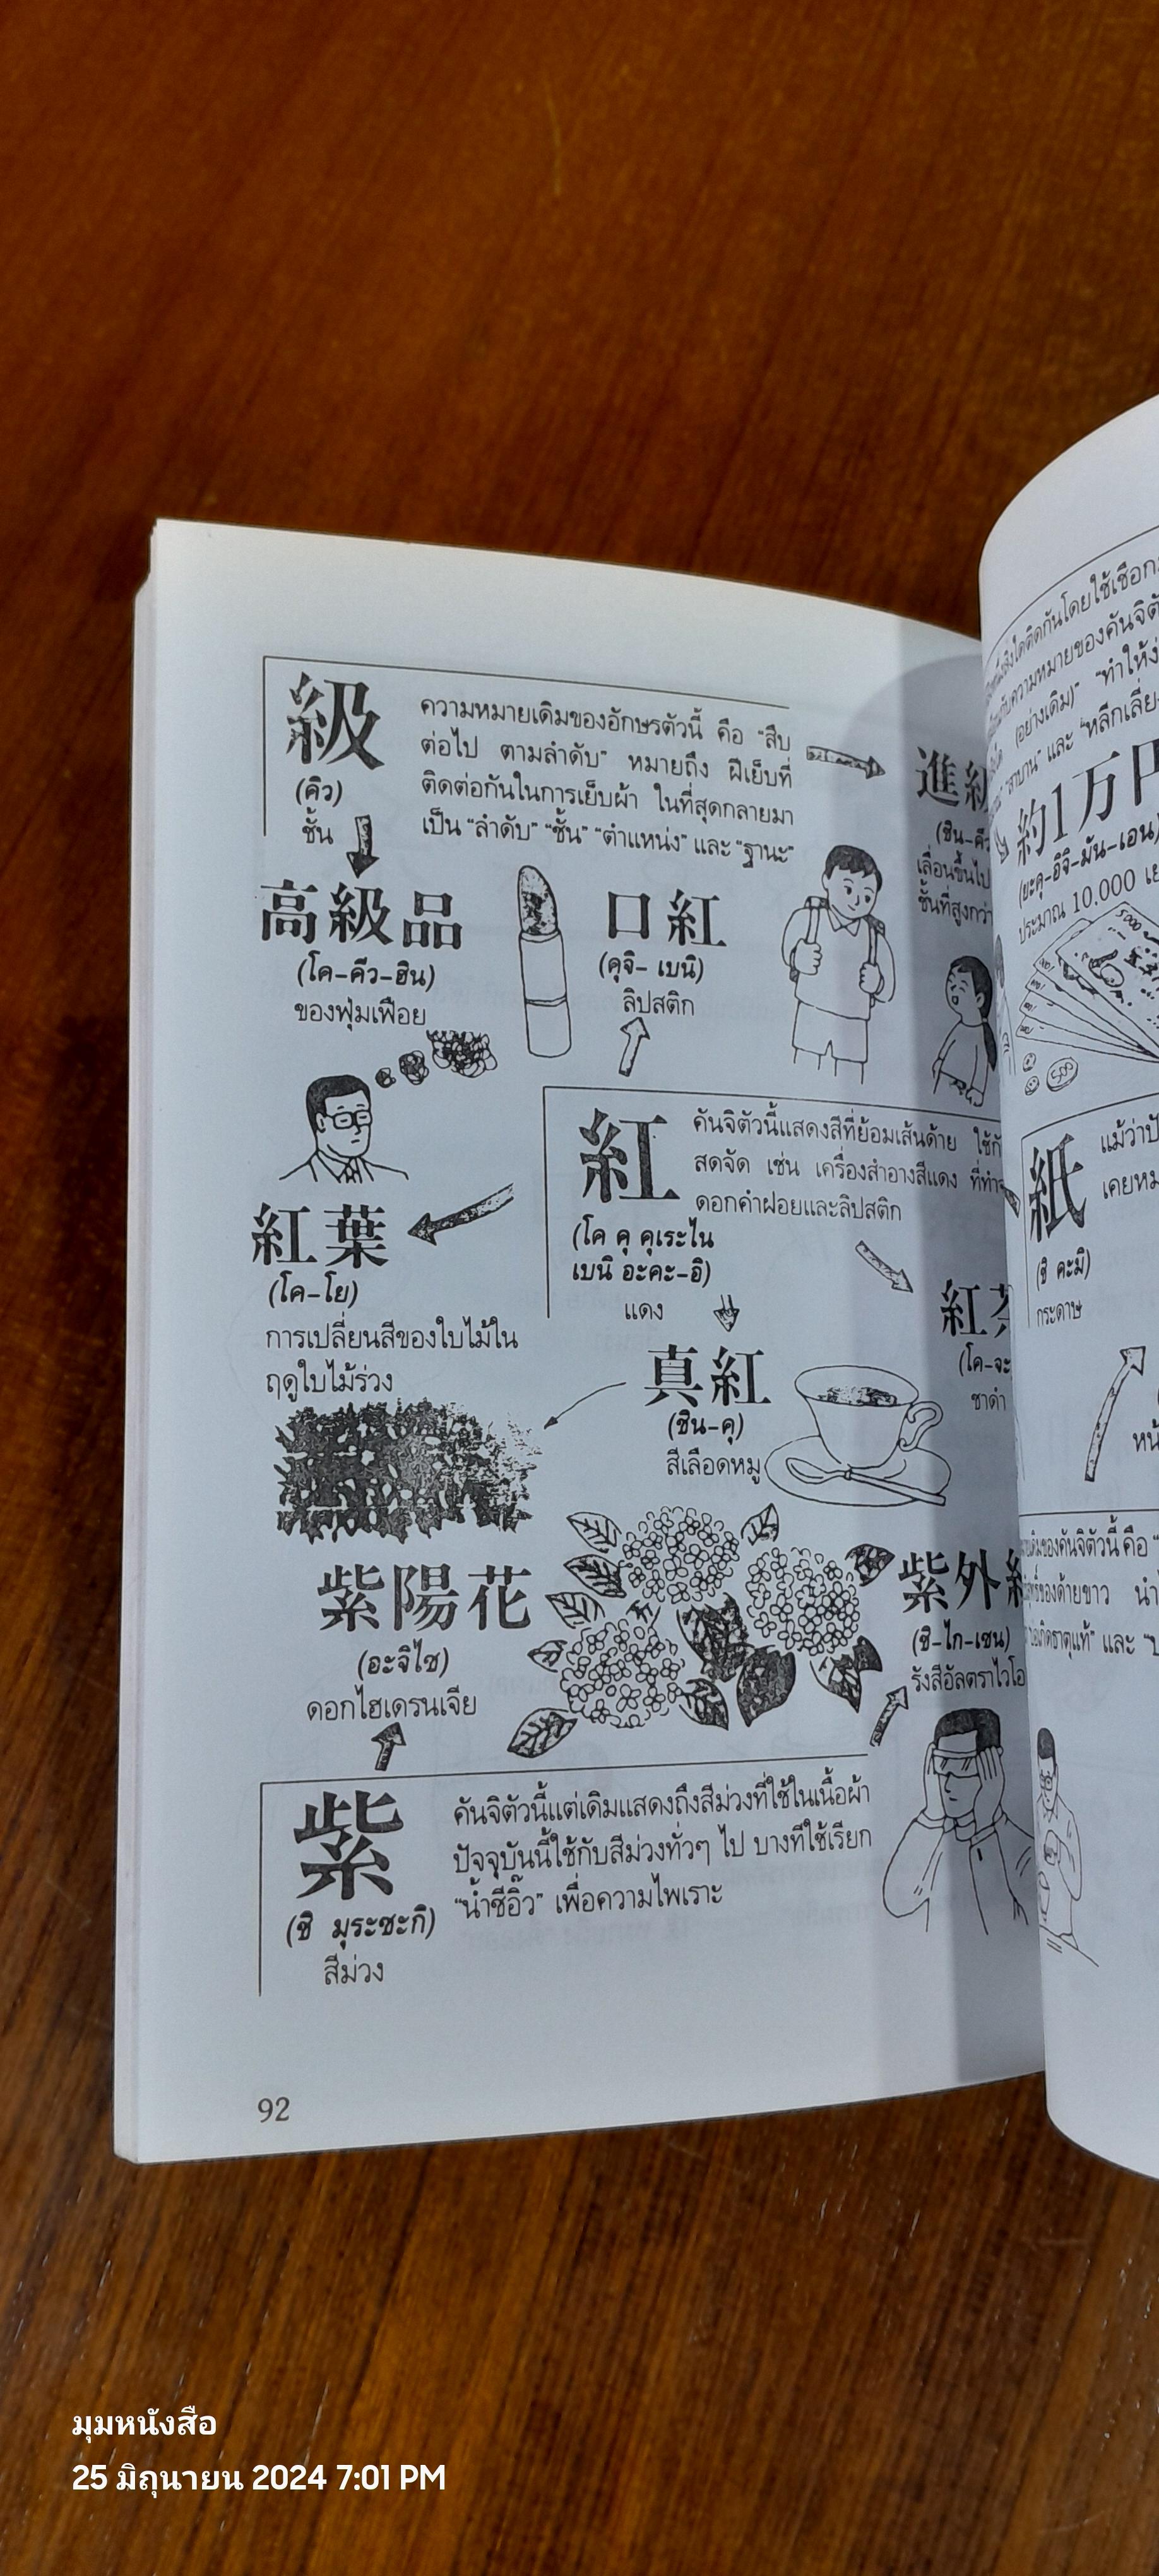 級
(คิว)
ชั้น
ความหมายเดิมของอักษรตัวนี้ คือ “สืบ
ต่อไป ตามลำดับ” หมายถึง ฝีเย็บที่
ติดต่อกันในการเย็บผ้า ในที่สุดกลายมา
เป็น “ลำดับ” “ชั้น” “ตำแหน่ง” และ “ฐานะ”
進級
(ชิน-คิว
เลื่อนขึ้นไป
ชั้นที่สูงกว่า
高級品
(โค-คิว-ฮิน)
ของฟุ่มเฟือย
口紅
(คุจิ- เบนิ)
ลิปสติก
紅
(โค คุ คุเระไน
เบนิ อะคะ-อิ)
แดง
คันจิตัวนี้แสดงสีที่ย้อมเส้นด้าย ใช้กับ
สดจัด เช่น เครื่องสำอางสีแดง ที่ทำ
ดอกคำฝอยและลิปสติก
紅葉
(โค-โย)
การเปลี่ยนสีของใบไม้ใน
ฤดูใบไม้ร่วง
真紅
(ชิน-คุ)
สีเลือดหมู
紅茶
(โค-จะ
ชาดำ
紫陽花
(อะจิไซ)
ดอกไฮเดรนเจีย
紫外
(ชิ-ไก-เซน)
รังสีอัลตราไวโอ
紫
(ชิ มุระซะกิ)
สีม่วง
คันจิตัวนี้แต่เดิมแสดงถึงสีม่วงที่ใช้ในเนื้อผ้า
ปัจจุบันนี้ใช้กับสีม่วงทั่วๆ ไป บางทีใช้เรียก
“น้ำชีอิ๊ว” เพื่อความไพเราะ
92
ติดกันโดยใช้เชือก
ความหมายของคันจิตั
(อย่างเดิม)” “ทำให้ง่
“สาบาน” และ “หลีกเลี่ยง
約1万円
(ยะคุ-อิจิ-มัน-เอน)
ประมาณ 10.000 เย
5000
500
紙
(ชิ คะมิ)
กระดาษ
แม้ว่าปั
เคยหม
หน้
เดิมของคันจิตัวนี้ คือ “
ของด้ายขาว นำ
และ “บ
มุมหนังสือ
25 มิถุนายน 2024 7:01 PM